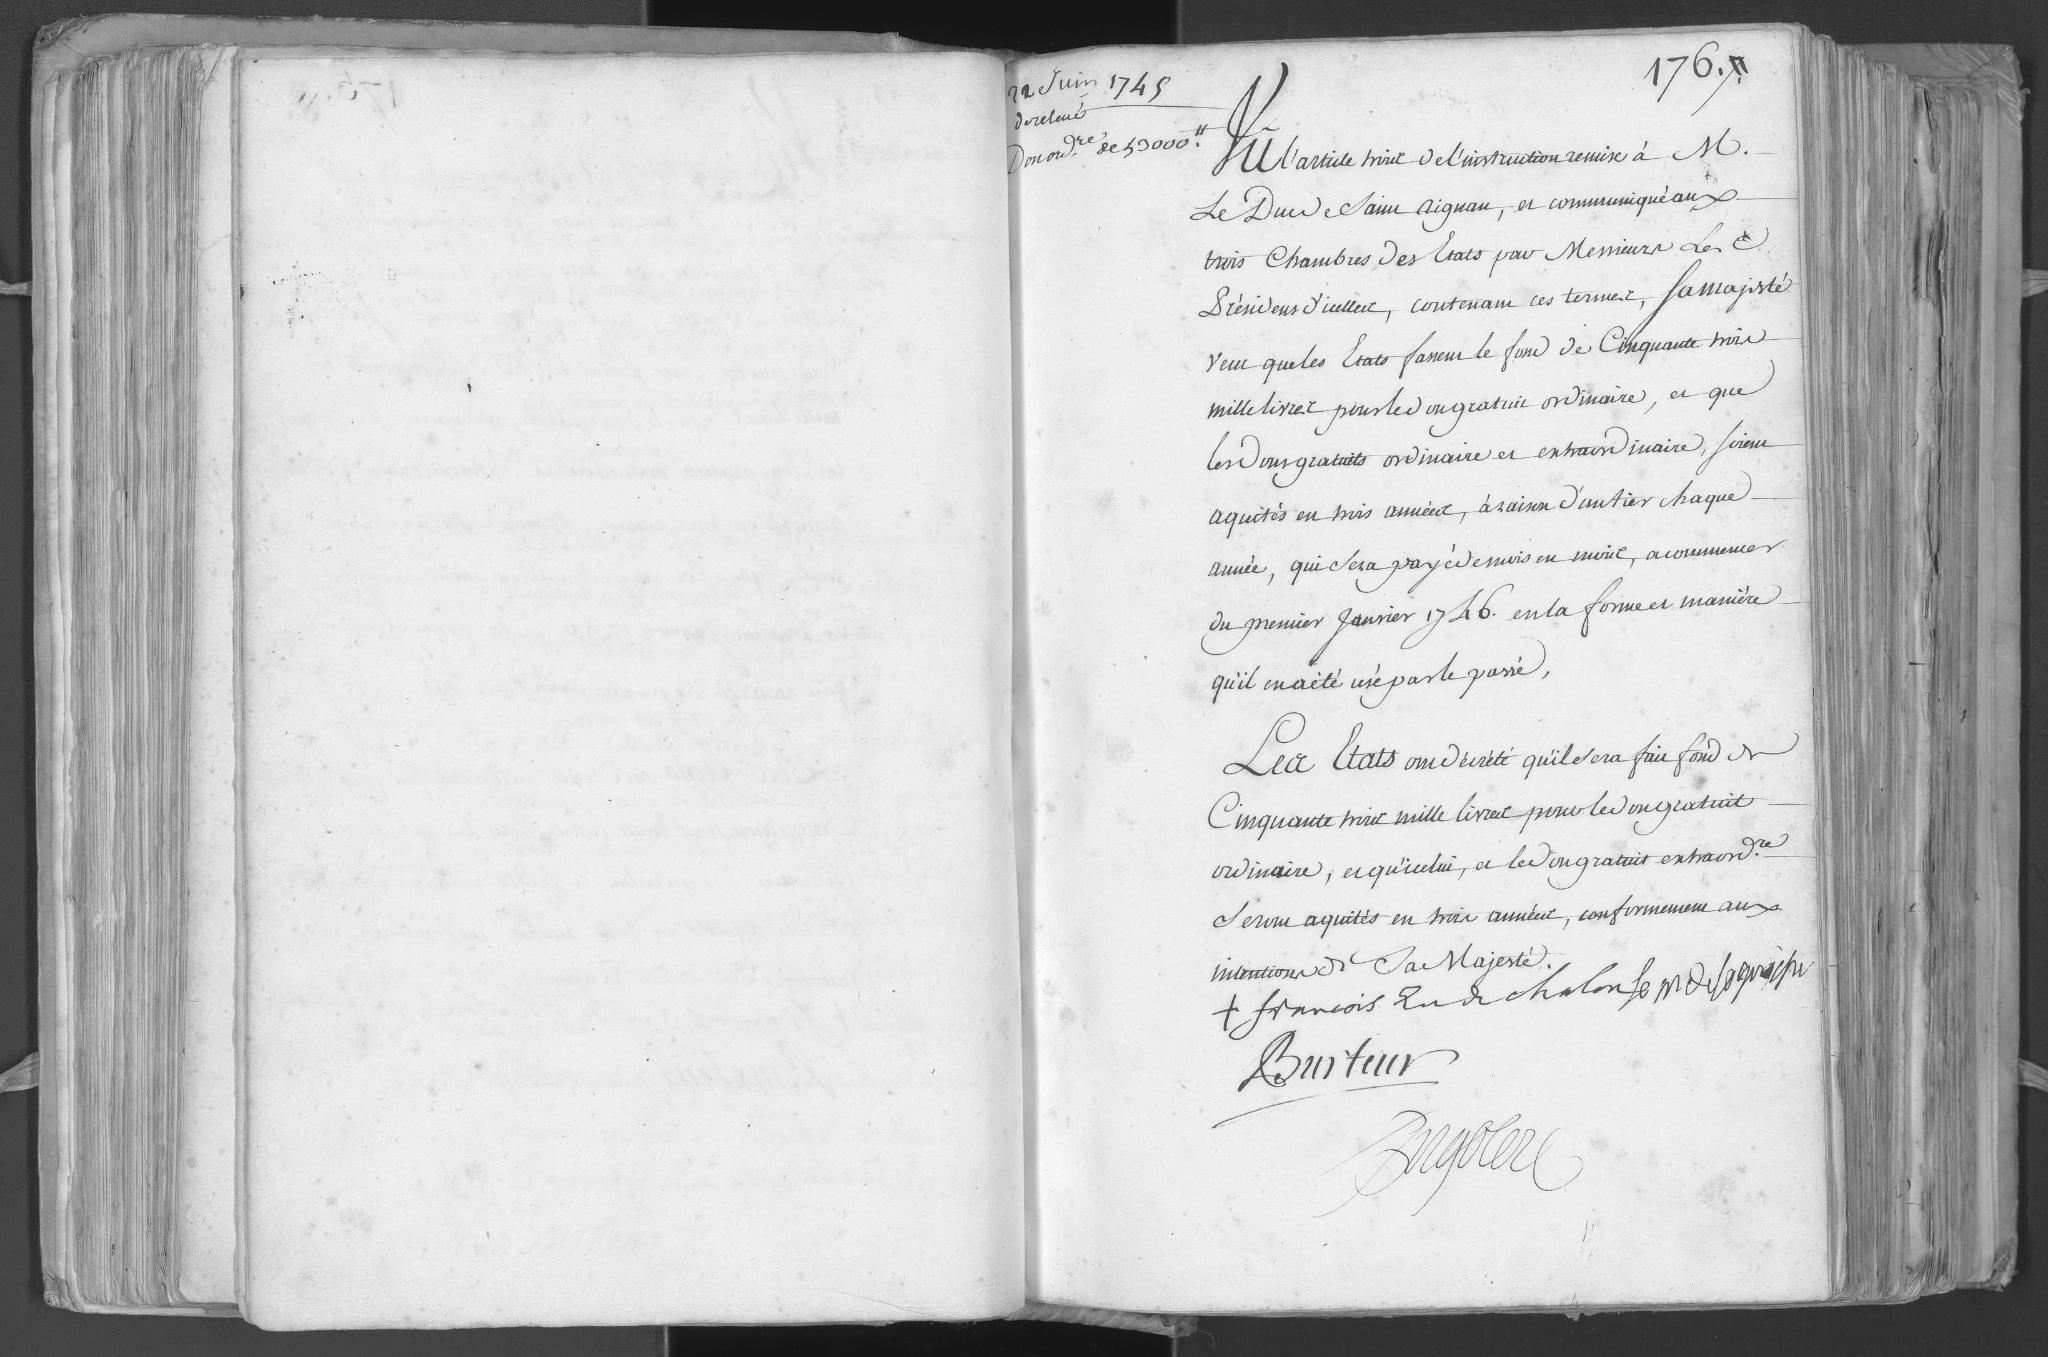 176.
22 Juin 1745
Don ord.re de 53000.ll
Vû l'article trois de l'instruction remise à M.
Le Duc de Saint Aignan, et communiqué aux
trois Chambres des Etats par Messieurs Les
Présidens d'icelles, contenant ces termes, Sa Majesté
veut que les Etats fassent le fond de Cinquante trois
mille livres pour le don gratuit ordinaire, et que
les dons gratuits ordinaire et extraordinaire, soient
aquités en trois années, à raison d'un tier chaque
année, qui sera payé de mois en mois, a commencer
du premier Janvier 1746. en la forme et maniére
qu'il en a été usé par le passé,
Les Etats ont décrété qu'il sera fait fond de
Cinquante trois mille livres pour le don gratuit
ordinaire, et qu'icelui, et le don gratuit extraord.re
seront aquités en trois années, conformement aux
intentions de Sa Majesté.
+ françois Ev de chalon
Burteur